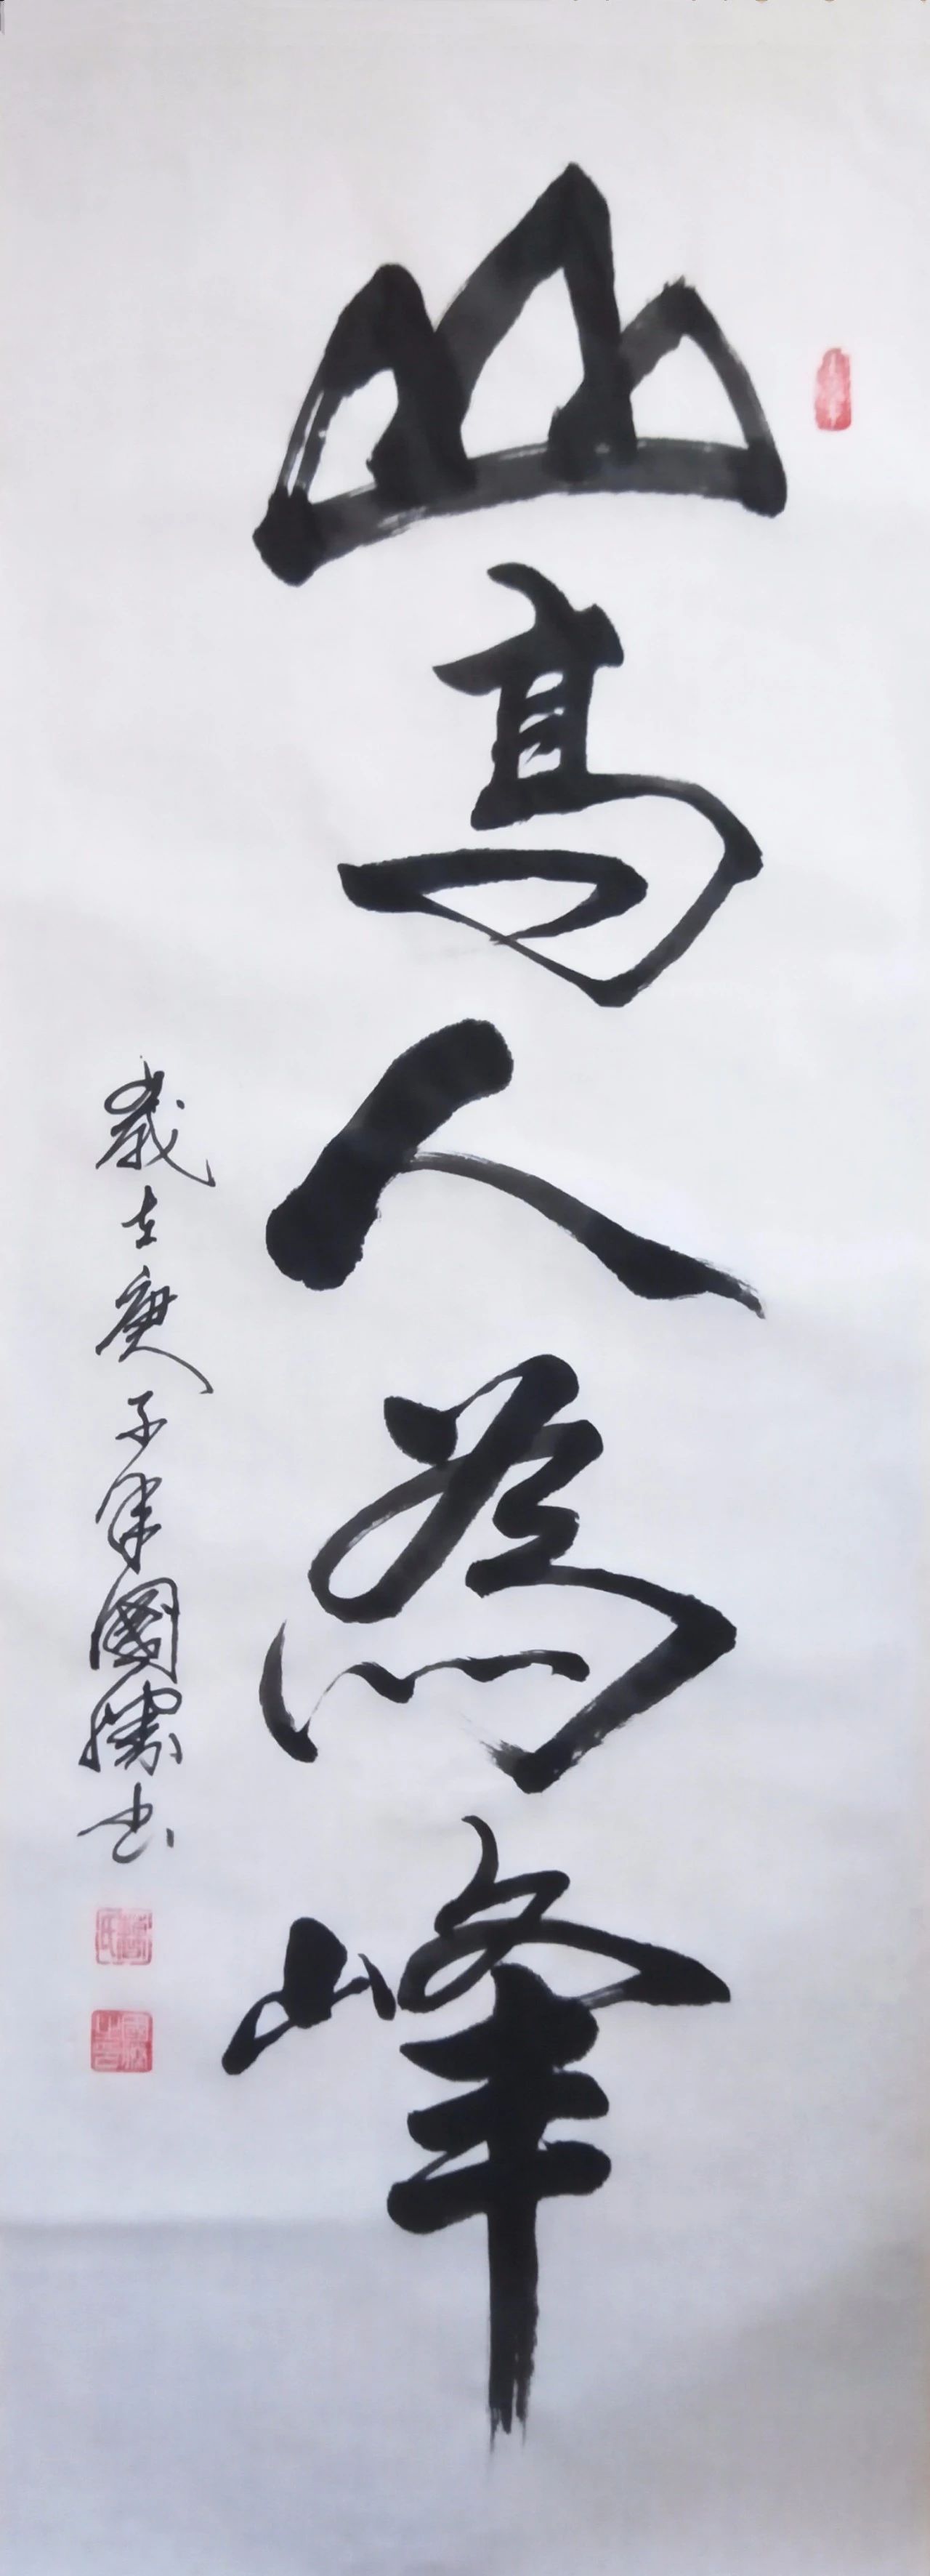 山高人為峰
歲在庚子年國儒書